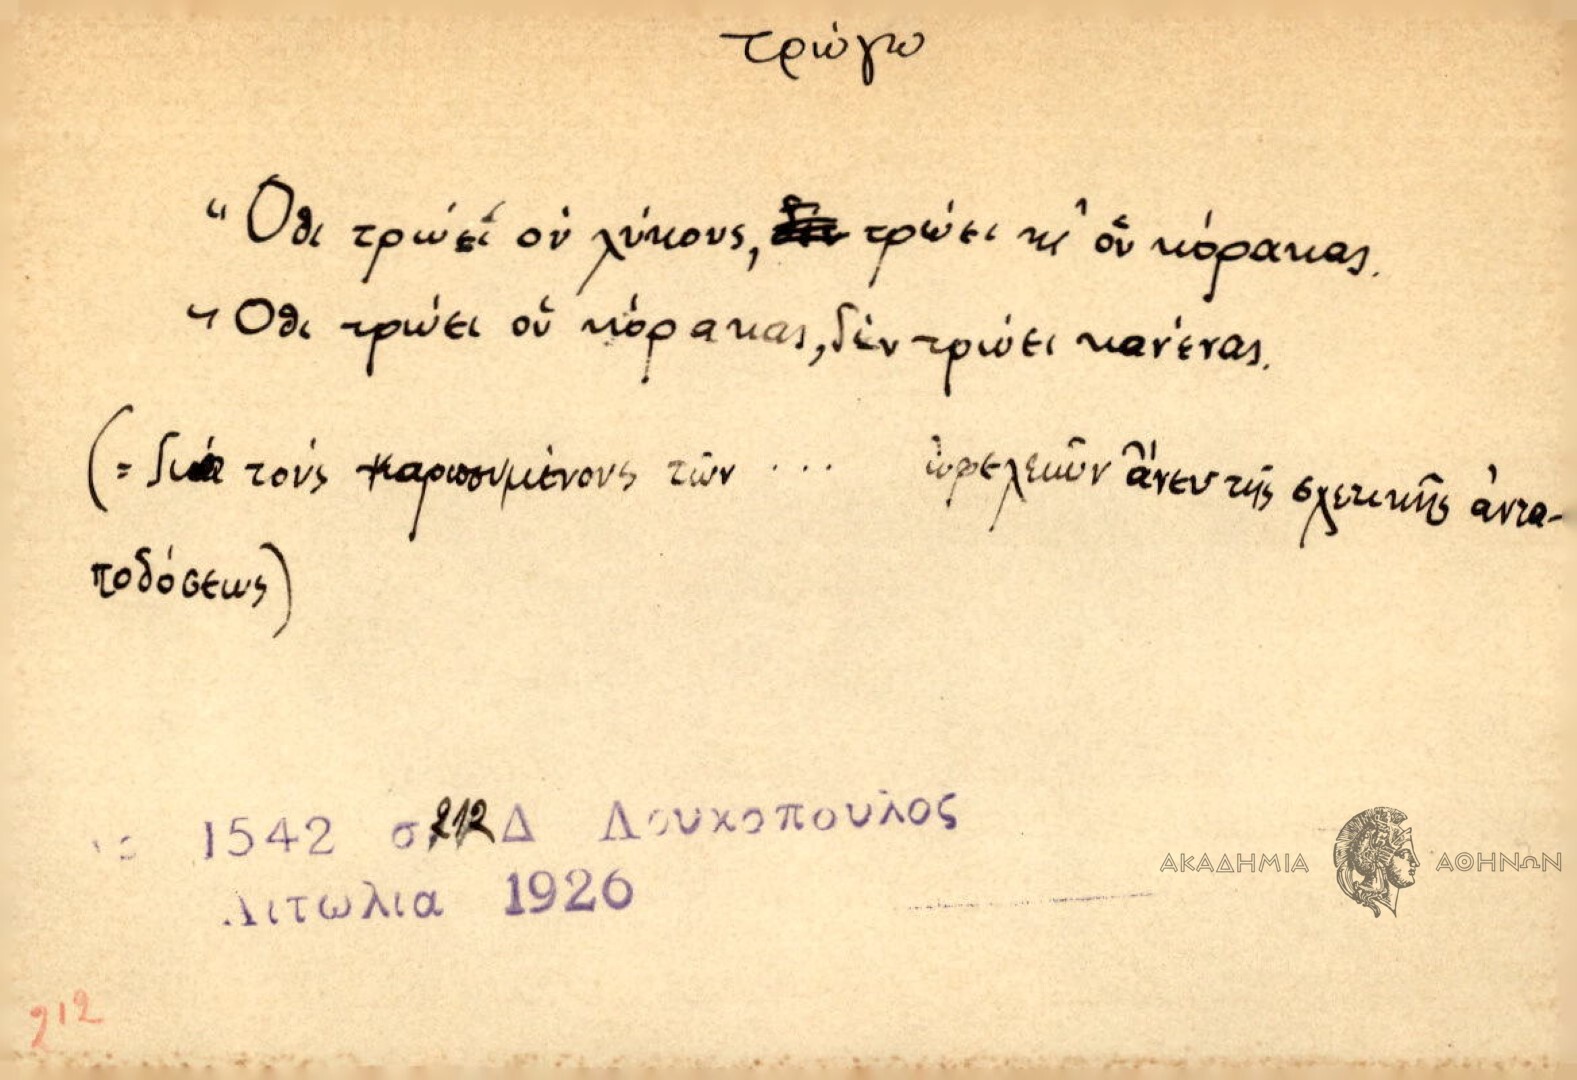 τρώγω
"Όθι τρώει οὑ λύκους, τρώει κι οὑ κόρακας.
"Όθι τρώει οὑ κόρακας, δὲν τρώει κανένας.
(= διὰ τοὺς καρπουμένους τῶν ... ὠφελειῶν ἄνευ τῆς σχετικῆς ἀντα-
ποδόσεως)
1542 σ 212 Δ Λουκοπουλος
Αιτωλια 1926
ΑΚΑΔΗΜΙΑ ΑΘΗΝΩΝ
212